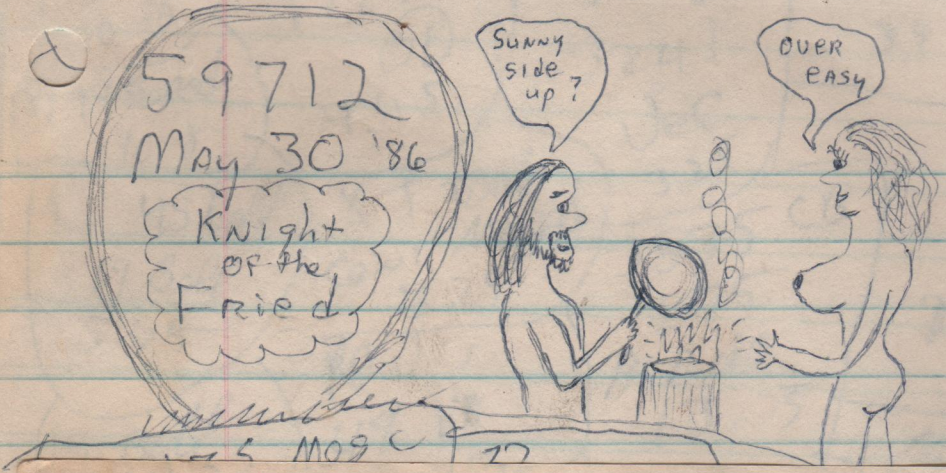 59712
May 30 '86
Knight
of the
Fried
Sunny
side
up?
over
easy